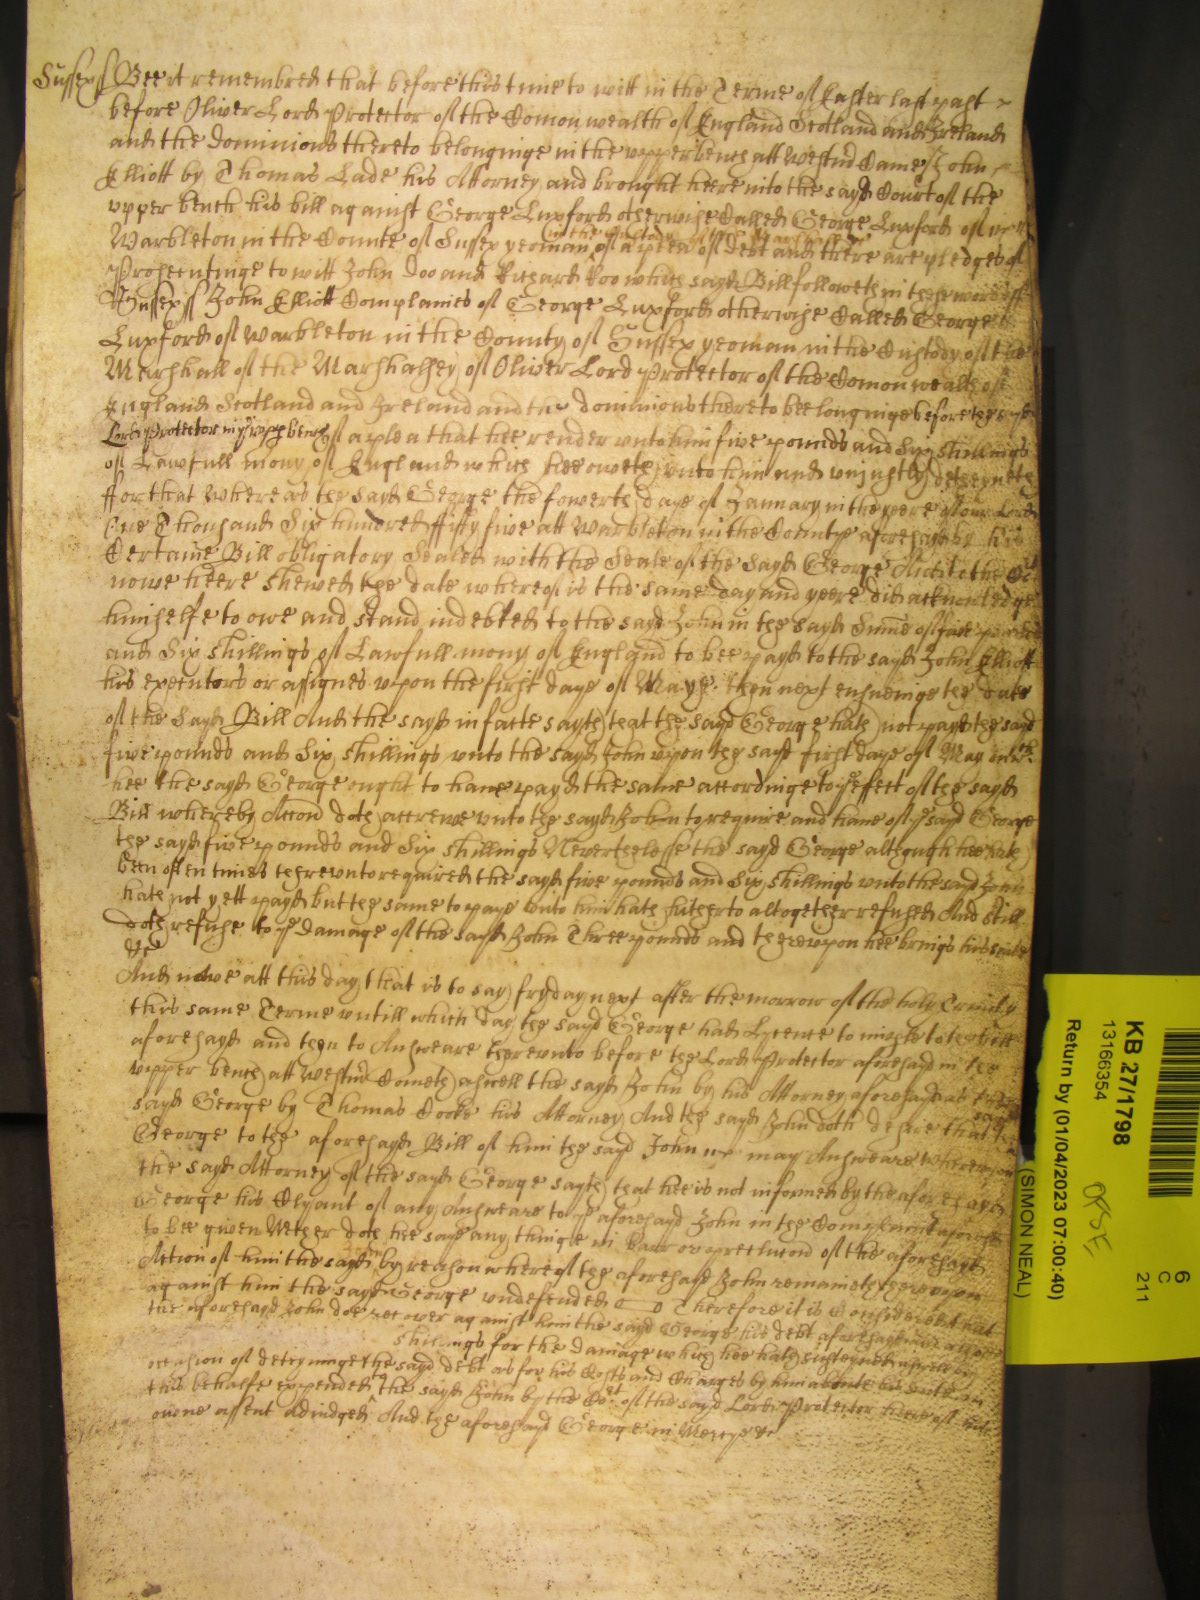 Sussex ss Bee it remembred that before this time to witt in the Terme of Easter last past
before Oliver Lord Protector of the Comonwealth of England Scotland and Ireland
and the dominions thereto belonginge in the upper bench att Westm̃d Came John
Elliott by Thomas Lade his Attorney and brought heere into the sayd Court of the
upper bench his bill against George Luxford otherwise Called George Luxford of
Warbleton in the Countie of Sussex yeoman in the Custody of a plea of debt and there are pledges of
Prosecutinge to witt John Doo and Richard Roo which sayd Bill followeth in these words ss
Sussex ss John Elliott Complaines of George Luxford otherwise Called George
Luxford of Warbleton in the County of Sussex yeoman in the Custody of the
Marshall of the Marshalsey of Oliver Lord Protector of the Comonwealth of
England Scotland and Ireland and the dominions thereto beelonginge before the sayd
Lord Protector in ye upp bench of a plea that hee render unto him five pounds and Six shillings
of Lawfull mony of England which hee oweth unto him and uniustly deteyneth
ffor that Whereas the sayd George the fowerth daye of January in the yeere of our Lord
One Thousand Six hundred ffifty five att Warbleton in the Countye aforesayd by his
Certaine Bill obligatory Sealed with the Seale of the sayd George And to the Crt
nowe heere shewed the date whereof is the same day and yeere did acknowledge
himselfe to owe and stand indebted to the sayd John in the sayd Summe of five pounds
and Six shillings of Lawfull mony of England to bee payd to the sayd John Elliott
his executors or assignes upon the first daye of Maye then next ensueinge the date
of the Sayd Bill And the sayd in facte sayth that the sayd George hath not payd the said
five pounds and Six shillings unto the sayd John upon the sayd first daye of May on wch
hee the sayd George ought to have payd the same accordinge to ye effect of the sayd
Bill whereby Accon doth accrewe unto the sayd John to require and have of ye sayd George
the sayd five pounds and Six shillings Neverthelesse the sayd George although hee hath
been often times thereunto required the sayd five pounds and Six shillings unto the sayd John
hath not yett payd but the same to paye unto him hath hitherto altogether refused And still
doth refuse to ye damage of the sayd John Three pounds and thereupon hee brings his suite
&c
And nowe att this day that is to say fryday next after the morrow of the holy Trinity
this same Terme untill which day the sayd George had Lycence to imparle to the bill
aforesayd and then to Answeare thereunto before the Lord Protector aforesayd in the
upper bench att Westm̃d Cometh aswell the sayd John by his Attorney aforesayd as the
sayd George by Thomas Cooke his Attorney And the sayd John doth desire that the sayd
George to the aforesayd Bill of him the sayd John may Answeare Whereupon
the sayd Attorney of the sayd George sayth that hee is not informed by the aforesayd
George his Clyant of any Answeare to ye aforesayd John in the Complaint aforesd
to bee given Nether doth hee saye any thinge in barr or preclucon of the aforesayd
Action of him the sayd John by reason whereof the aforesayd John remaineth thereupon
against him the sayd George undefended Therefore it is Considered that
the aforesayd John doe recover against him the sayd George his debt aforesayd and allsoe
shillings for the damage which hee hath susteyned aswell by
occasion of deteyninge the sayd debt as for his Costs and Charges by him aboute his suite in
this behalfe expended the sayd John by the Crt of the sayd Lord Protector heere of
owne assent adiudged And the aforesayd George in Mercye &c
KB 27/1798
13166354
Return by (01/04/2023 07:00:40)
(SIMON NEAL)
6
C
211